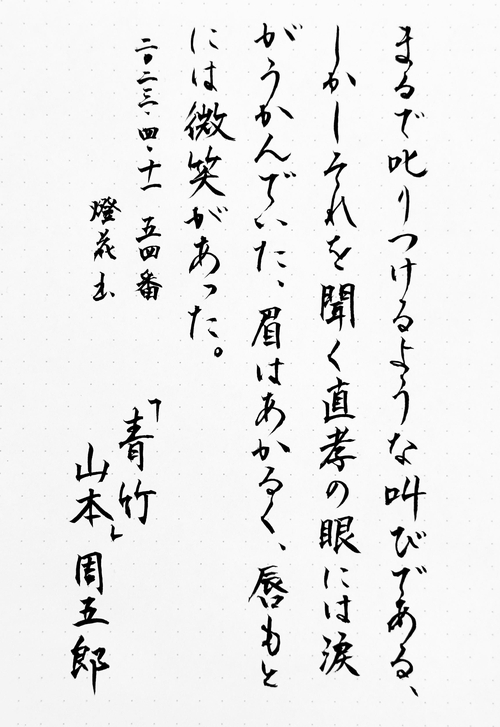 まるで叱りつけるような叫びである、
しかしそれを聞く直孝の眼には涙
がうかんでいた、眉はあかるく、唇もと
には微笑があった。
二〇二三・四・十一 五四番
燈花书
「青竹」
山本周五郎